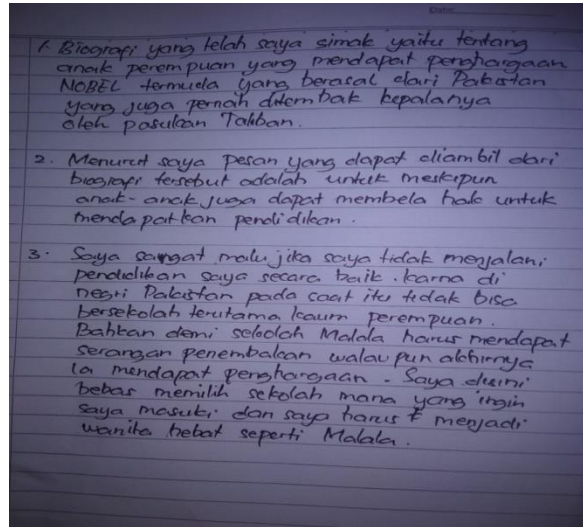 Date:
1. Biografi yang telah saya simak yaitu tentang
anak perempuan yang mendapat penghargaan
NOBEL termuda yang berasal dari Pakistan
yang juga pernah ditembak kepalanya
oleh pasukan Taliban.
2. Menurut saya pesan yang dapat diambil dari
biografi tersebut adalah untuk meskipun
anak-anak juga dapat membela hak untuk
mendapatkan pendidikan.
3. Saya sangat malu jika saya tidak menjalani
pendidikan saya secara baik. karna di
negri Pakistan pada saat itu tidak bisa
bersekolah terutama kaum perempuan.
Bahkan demi sekolah Malala harus mendapat
serangan penembakan walau pun akhirnya
Ia mendapat penghargaan. Saya disini
bebas memilih sekolah mana yang ingin
saya masuki dan saya harus menjadi
wanita hebat seperti Malala.